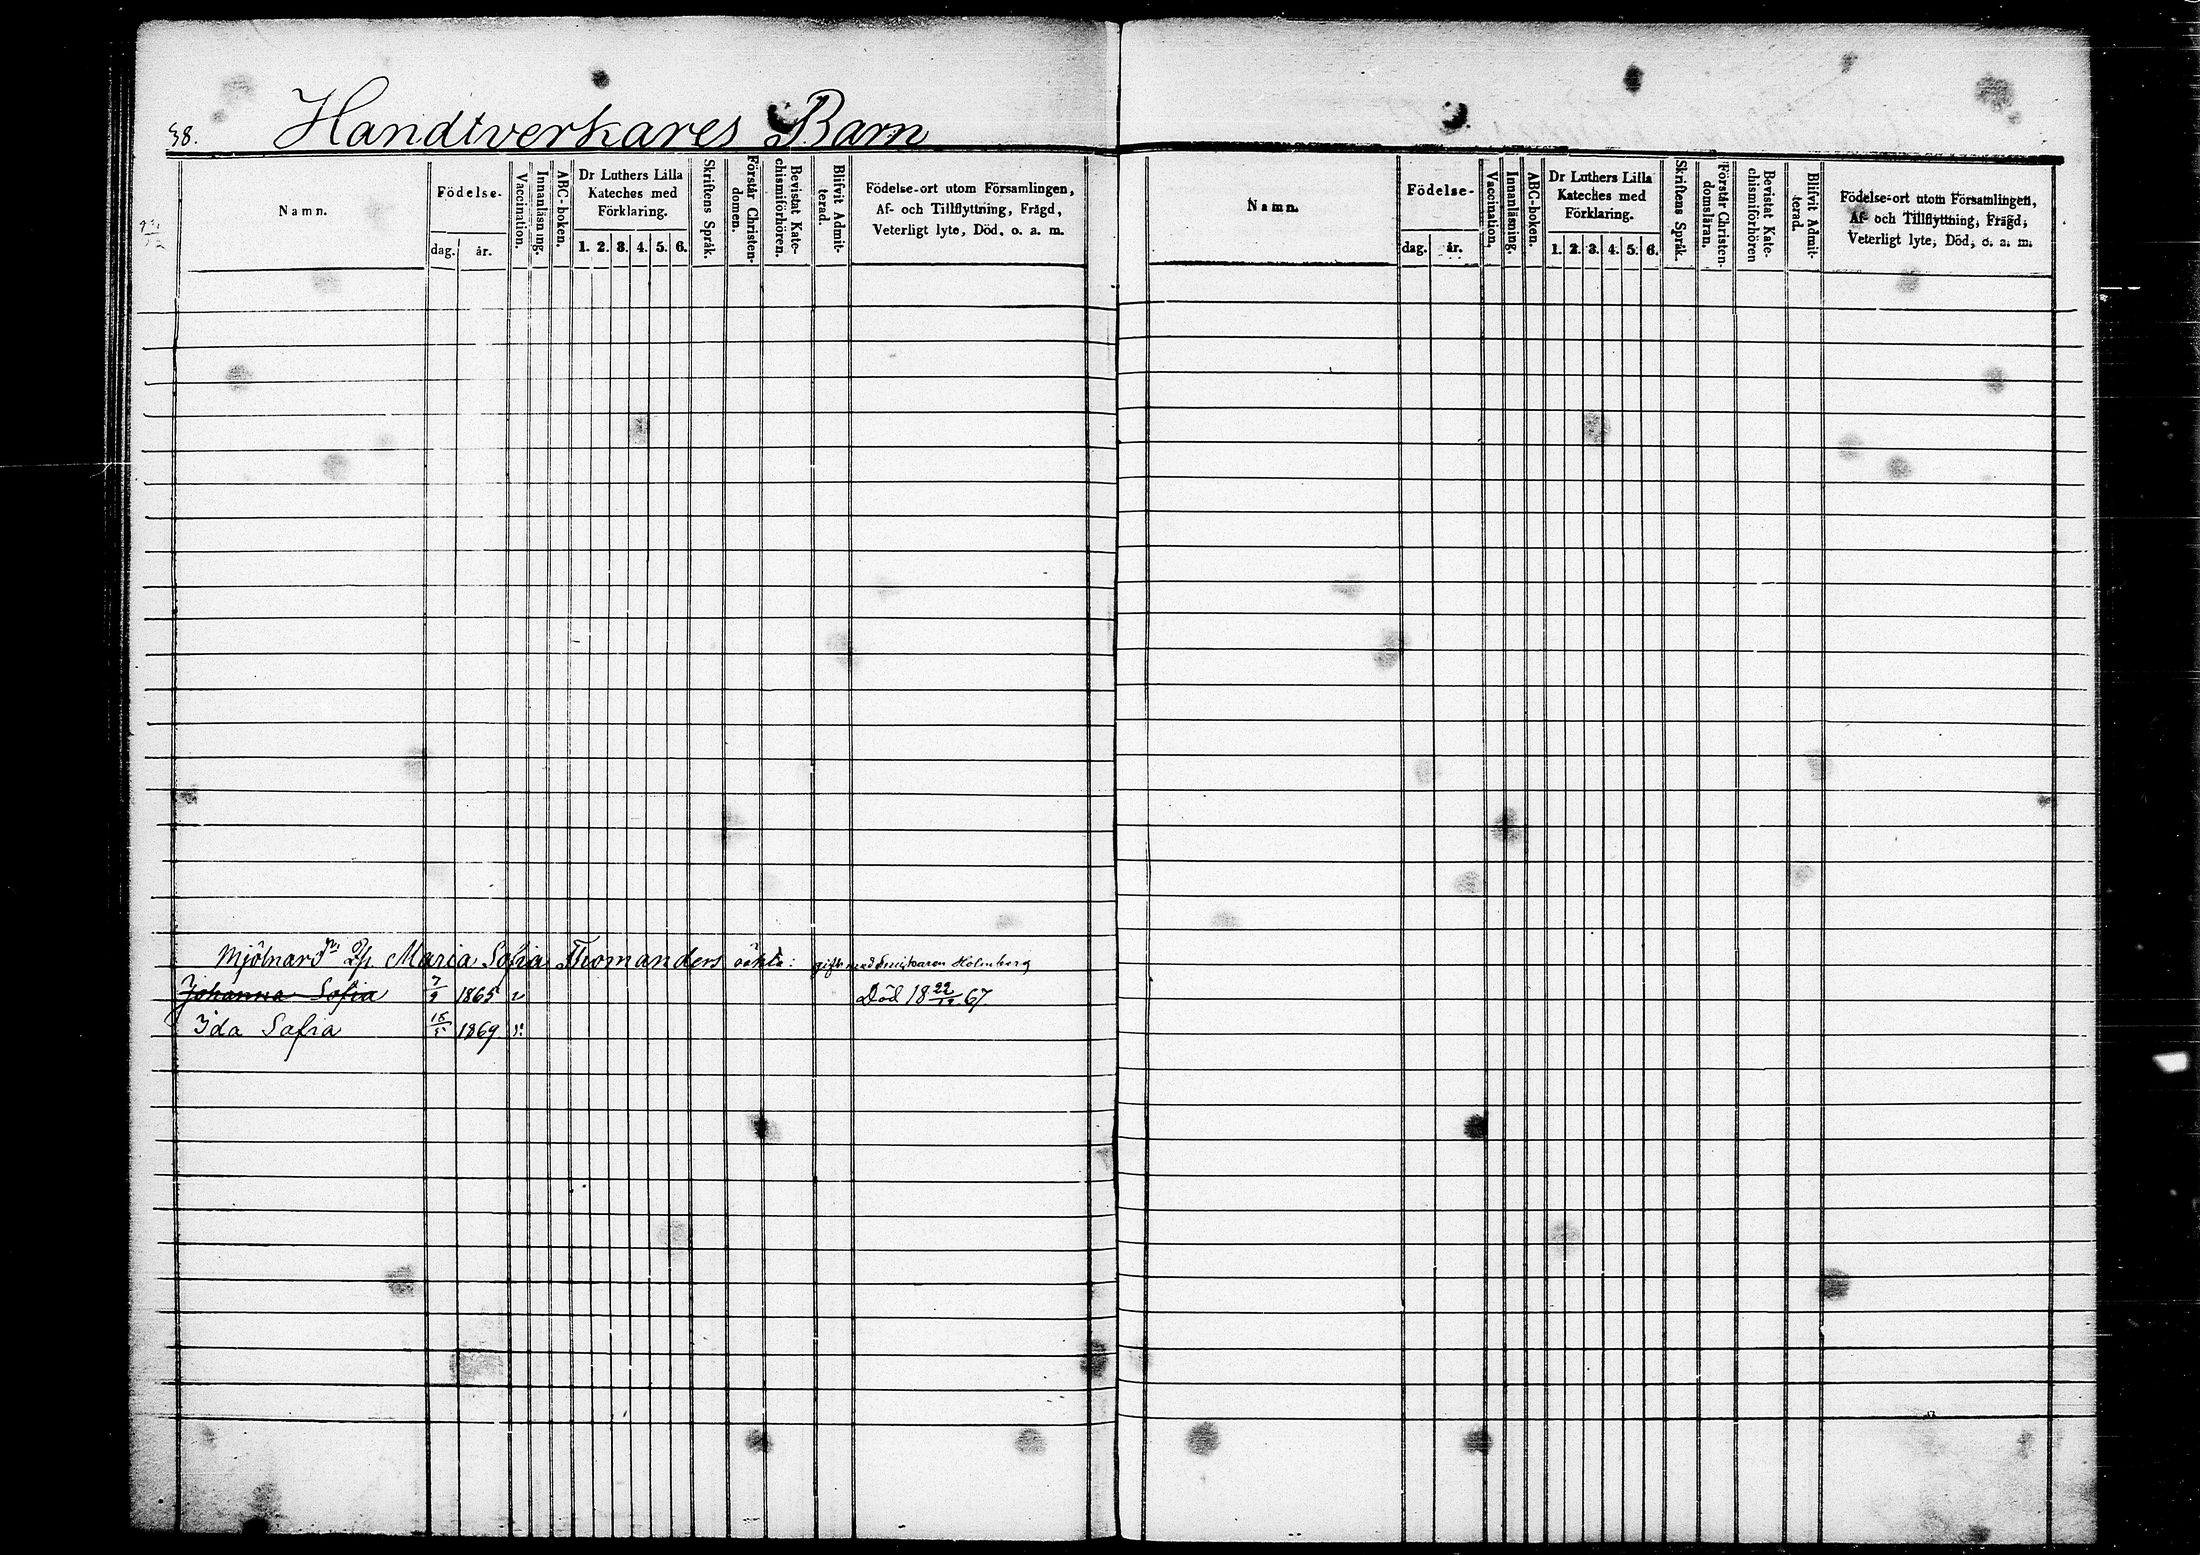 38. Handtverkares Barn
Namn.
Födelse-
dag. år.
Vaccination.
Innanläsning.
ABC-boken.
Dr Luthers Lilla
Kateches med
Förklaring.
1. 2. 3. 4. 5. 6.
Skriftens Språk.
Förstår Christen-
domen.
Bevistat Kate-
chismiförhören.
Blifvit Admit-
terad.
Födelse-ort utom Församlingen,
Af- och Tillflyttning, Frägd,
Veterligt lyte, Död, o. a. m.
Mjölnard Maria Sofia Thomanders oäkta: gift med Snickaren Holmberg
Johanna Sofia 7/9 1865 v Död 18 22/12 67.
Ida Sofia 1869
Namn.
Födelse-
dag. år.
Vaccination.
Innanläsning.
ABC-boken.
Dr Luthers Lilla
Kateches med
Förklaring.
1. 2. 3. 4. 5. 6.
Skriftens Språk.
Förstår Christen-
domsläran.
Bevistat Kate-
chismiförhören
Blifvit Admit-
terad.
Födelse-ort utom Församlingen,
Af- och Tillflyttning, Frägd,
Veterligt lyte, Död, o. a. m.